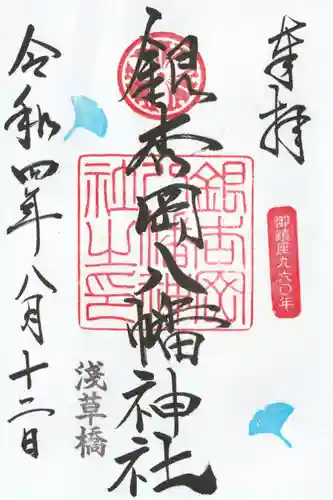 奉拝
御鎮座九六〇年
銀杏岡八幡神社
銀杏岡八幡神社之印
浅草橋
令和四年八月十二日